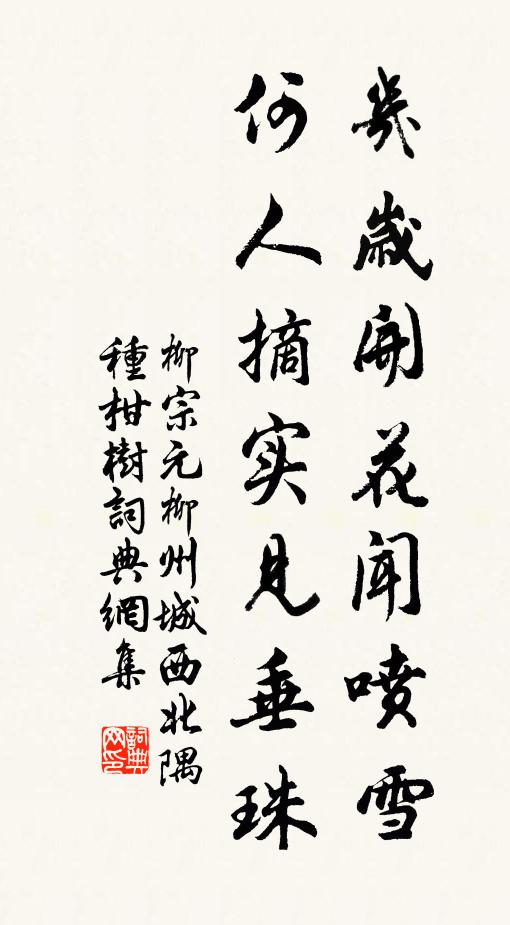 幾歲開花聞噴雪
何人摘实見垂珠
柳宗元柳州城西北隅
種柑樹詞典網集
詞典
网印